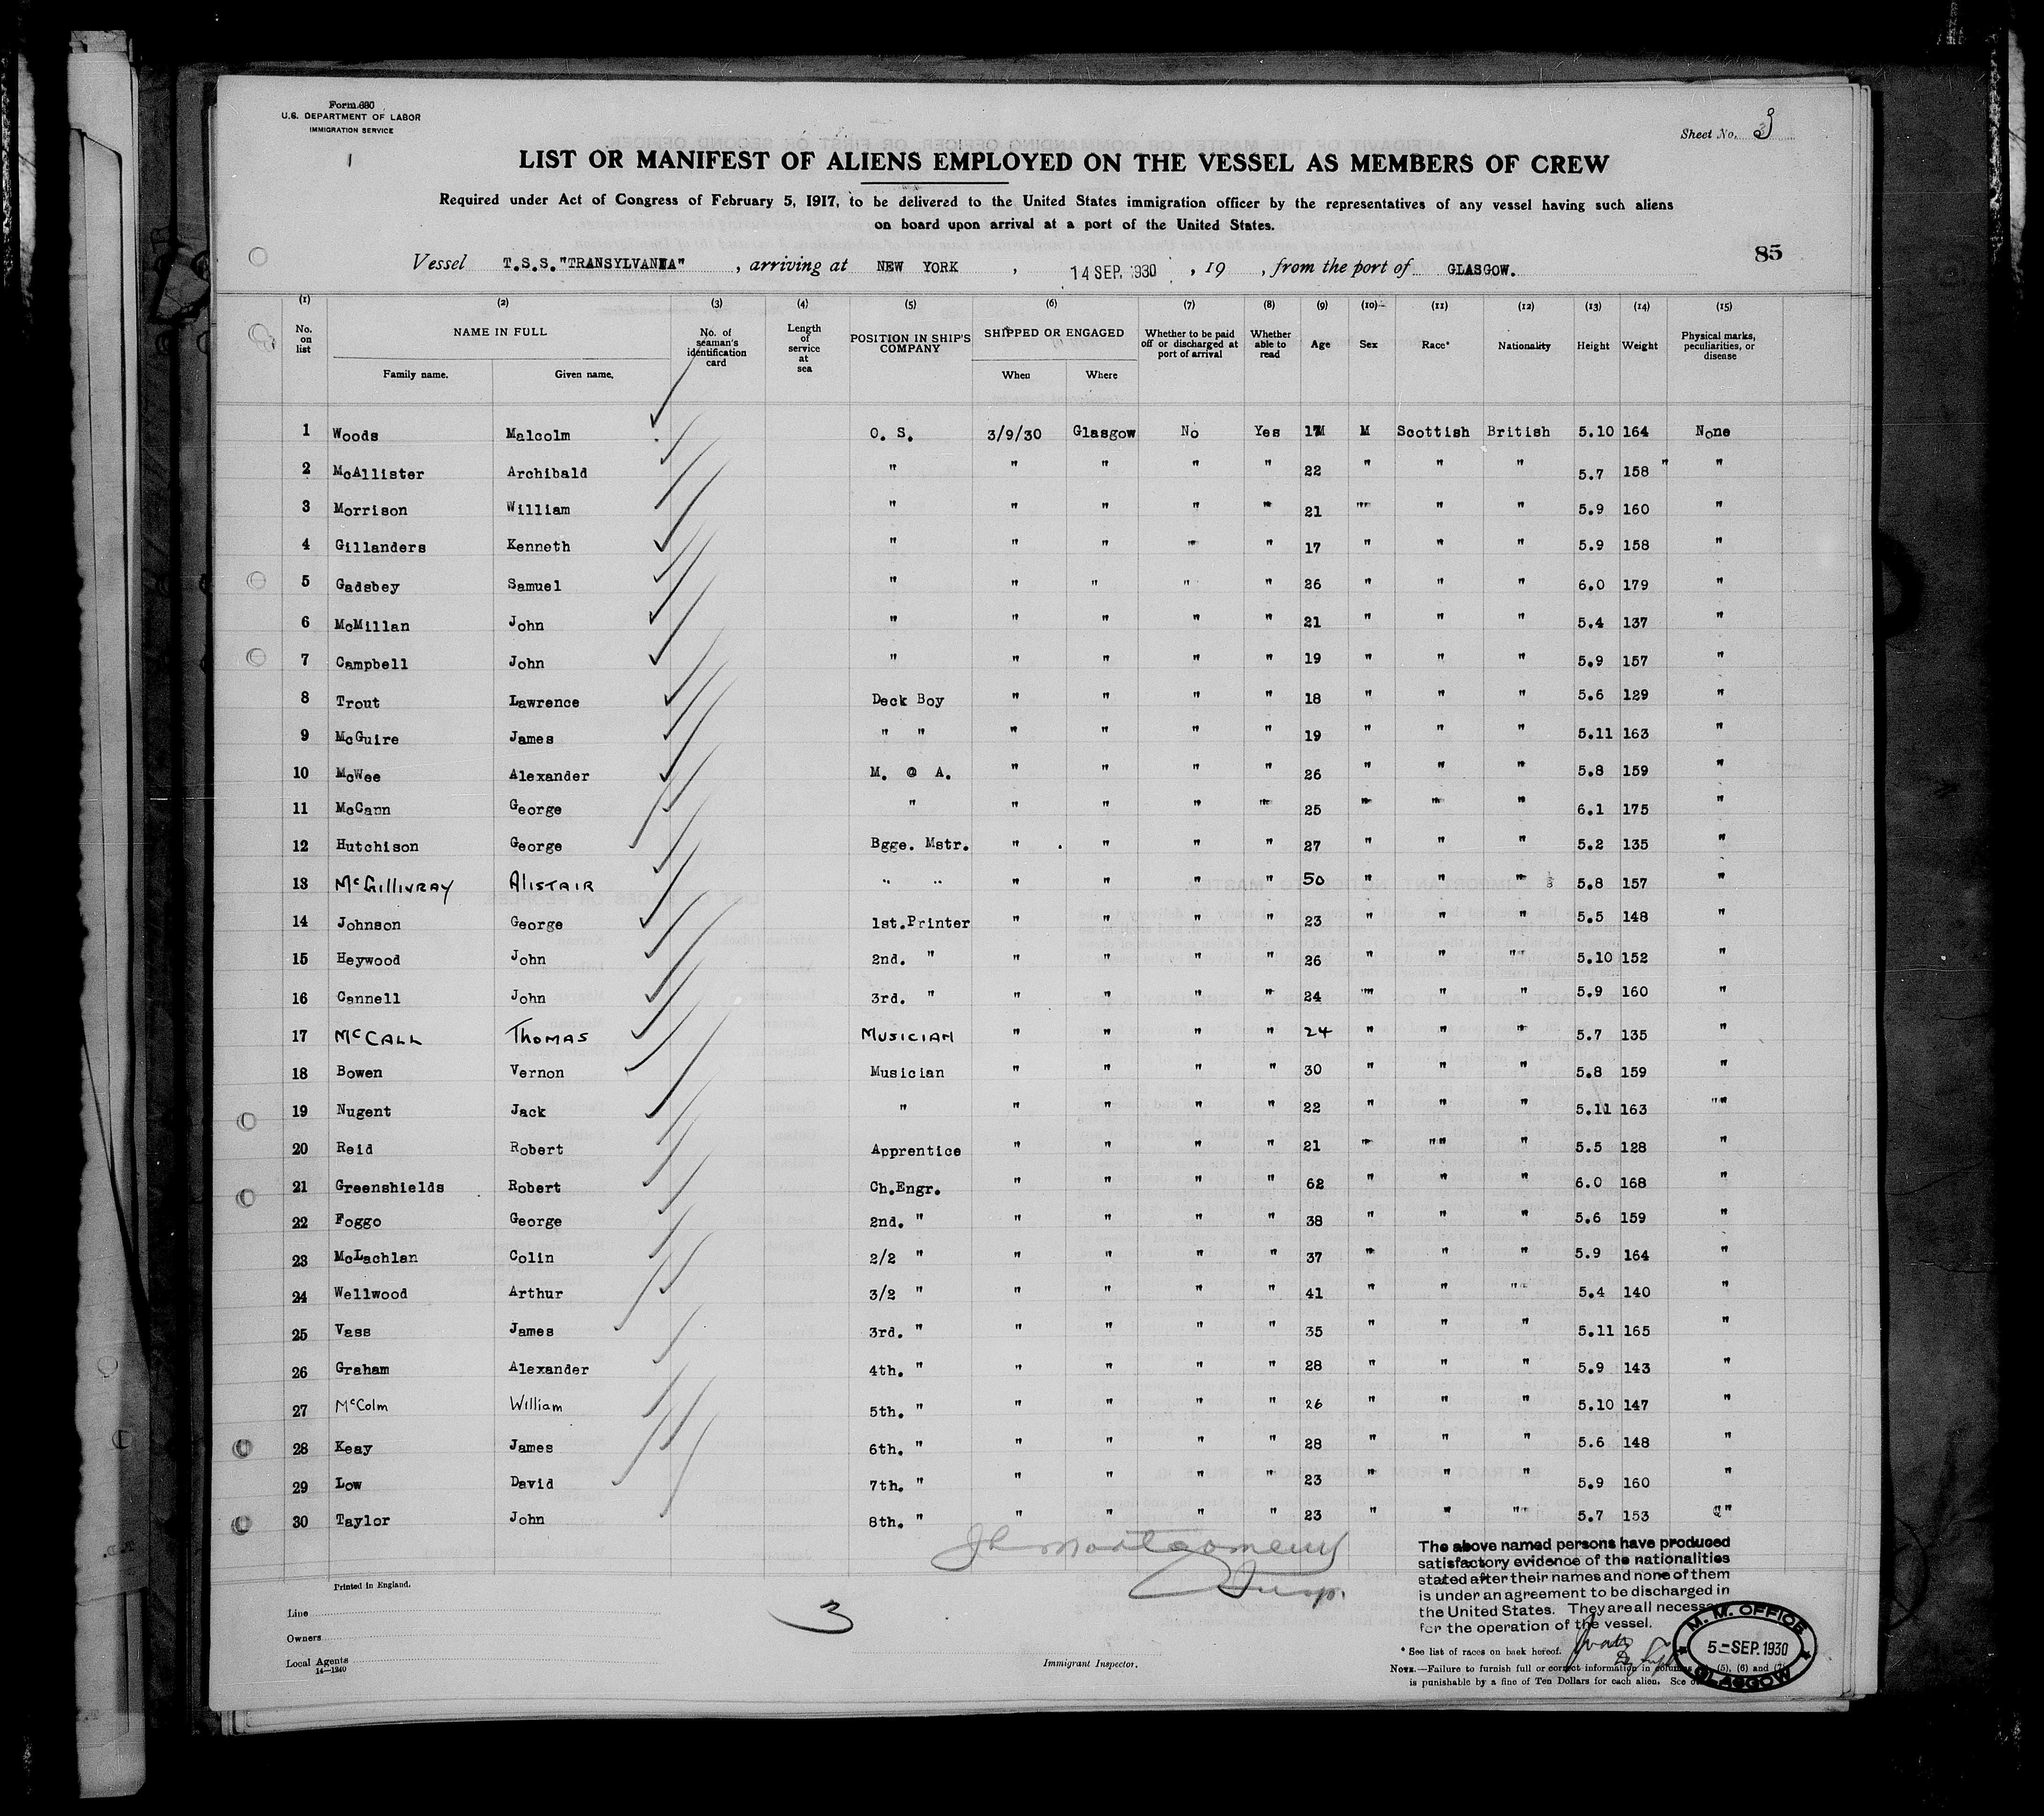 Form 680
U.S. DEPARTMENT OF LABOR
IMMIGRATION SERVICE
1
Sheet No. 3
LIST OR MANIFEST OF ALIENS EMPLOYED ON THE VESSEL AS MEMBERS OF CREW
Required under Act of Congress of February 5, 1917, to be delivered to the United States immigration officer by the representatives of any vessel having such aliens
on board upon arrival at a port of the United States.
85
Vessel T.S.S."TRANSYLVANIA" , arriving at NEW YORK , 14 SEP. 1930 , 19 , from the port of GLASGOW.
(1) (2) (3) (4) (5) (6) (7) (8) (9) (10) (11) (12) (13) (14) (15)
No. on list NAME IN FULL Family name. Given name. No. of seaman's identification card Length of service at sea POSITION IN SHIP'S COMPANY SHIPPED OR ENGAGED When Where Whether to be paid off or discharged at port of arrival Whether able to read Age Sex Race* Nationality Height Weight Physical marks, peculiarities, or disease
1 Woods Malcolm O. S. 3/9/30 Glasgow No Yes 17 M Scottish British 5.10 164 None
2 McAllister Archibald " " " " " 22 " " " 5.7 158 " "
3 Morrison William " " " " " 21 " " " 5.9 160 "
4 Gillanders Kenneth " " " " " 17 " " " 5.9 158 "
5 Gadsbey Samuel " " " " " 26 " " " 6.0 179 "
6 McMillan John " " " " " 21 " " " 5.4 137 "
7 Campbell John " " " " " 19 " " " 5.9 157 "
8 Trout Lawrence Deck Boy " " " " 18 " " " 5.6 129 "
9 McGuire James " " " " " " 19 " " " 5.11 163 "
10 McWee Alexander M. @ A. " " " " 26 " " " 5.8 159 "
11 McCann George " " " " " 25 " " " 6.1 175 "
12 Hutchison George Bgge. Mstr. " " " " 27 " " " 5.2 135 "
13 McGILLIVRAY ALISTAIR " " " " " " 50 " " " 5.8 157 "
14 Johnson George 1st.Printer " " " " 23 " " " 5.5 148 "
15 Heywood John 2nd. " " " " " 26 " " " 5.10 152 "
16 Cannell John 3rd. " " " " " 24 " " " 5.9 160 "
17 McCALL THOMAS MUSICIAN " " " " 24 " " " 5.7 135 "
18 Bowen Vernon Musician " " " " 30 " " " 5.8 159 "
19 Nugent Jack " " " " " 22 " " " 5.11 163 "
20 Reid Robert Apprentice " " " " 21 " " " 5.5 128 "
21 Greenshields Robert Ch.Engr. " " " " 62 " " " 6.0 168 "
22 Foggo George 2nd. " " " " " 38 " " " 5.6 159 "
23 McLachlan Colin 2/2 " " " " " 37 " " " 5.9 164 "
24 Wellwood Arthur 3/2 " " " " " 41 " " " 5.4 140 "
25 Vass James 3rd. " " " " " 35 " " " 5.11 165 "
26 Graham Alexander 4th. " " " " " 28 " " " 5.9 143 "
27 McColm William 5th. " " " " " 26 " " " 5.10 147 "
28 Keay James 6th. " " " " " 28 " " " 5.6 148 "
29 Low David 7th. " " " " " 23 " " " 5.9 160 "
30 Taylor John 8th. " " " " " 23 " " " 5.7 153 "
Montgomery
Insp.
The above named persons have produced
satisfactory evidence of the nationalities
stated after their names and none of them
is under an agreement to be discharged in
the United States. They are all necessary
for the operation of the vessel.
Printed in England.
Line
Owners
Local Agents
14—1240
3
Immigrant Inspector.
* See list of races on back hereof.
NOTE.—Failure to furnish full or correct information in columns (5), (6) and (7)
is punishable by a fine of Ten Dollars for each alien. See
M. M. OFFICE
5-SEP.1930
GLASGOW